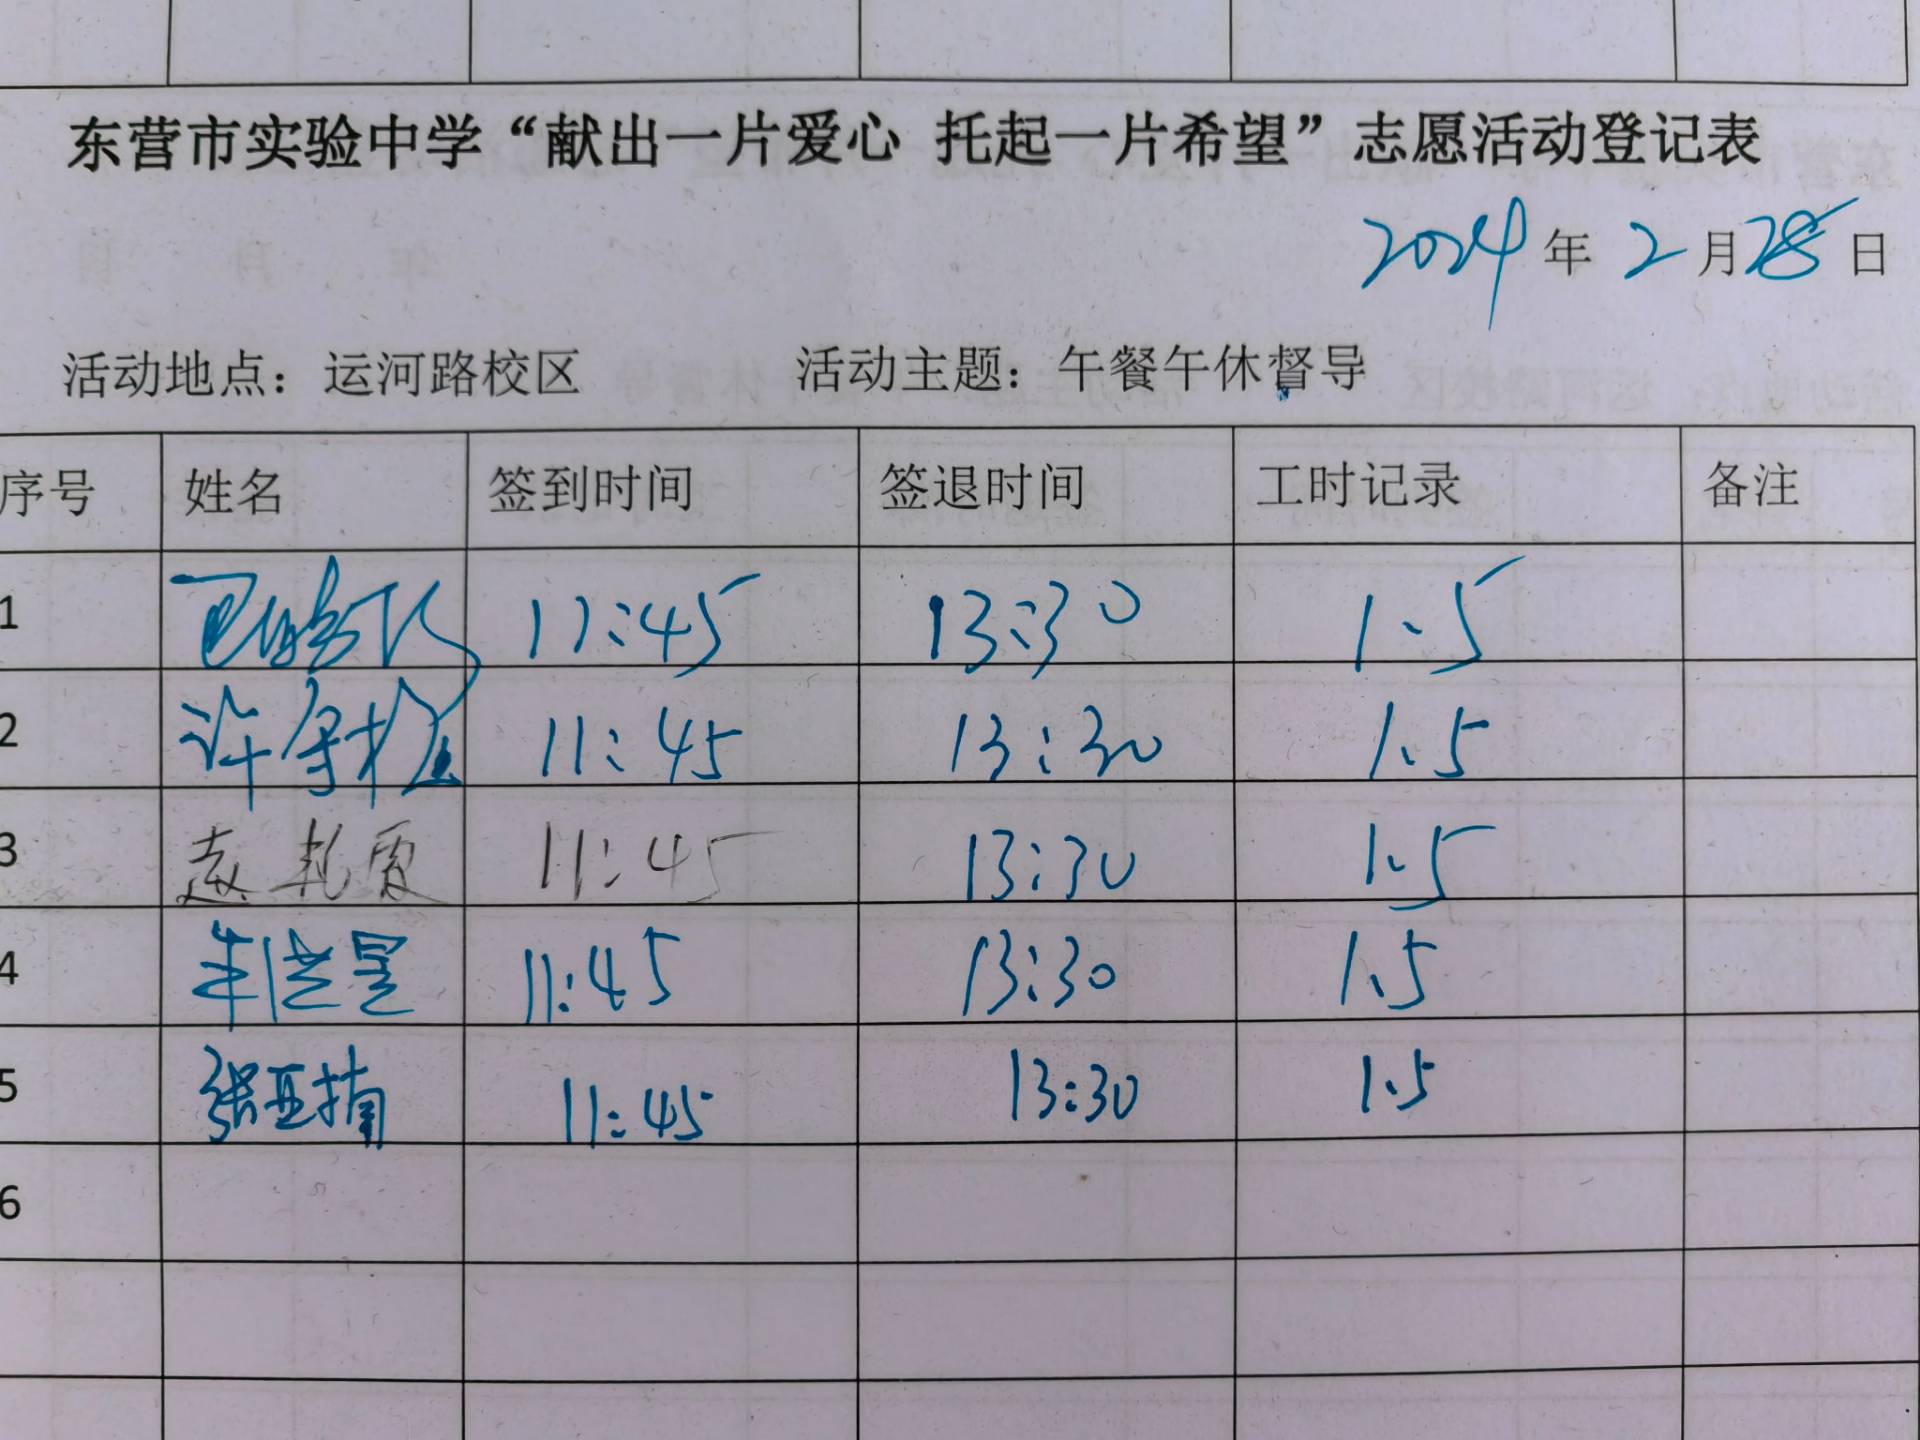 东营市实验中学“献出一片爱心 托起一片希望”志愿活动登记表
2024年 2月28日
活动地点：运河路校区 活动主题：午餐午休督导
序号 姓名 签到时间 签退时间 工时记录 备注
1 11:45 13:30 1.5
2 许 11:45 13:30 1.5
3 赵 11:45 13:30 1.5
4 11:45 13:30 1.5
5 张亚楠 11:45 13:30 1.5
6